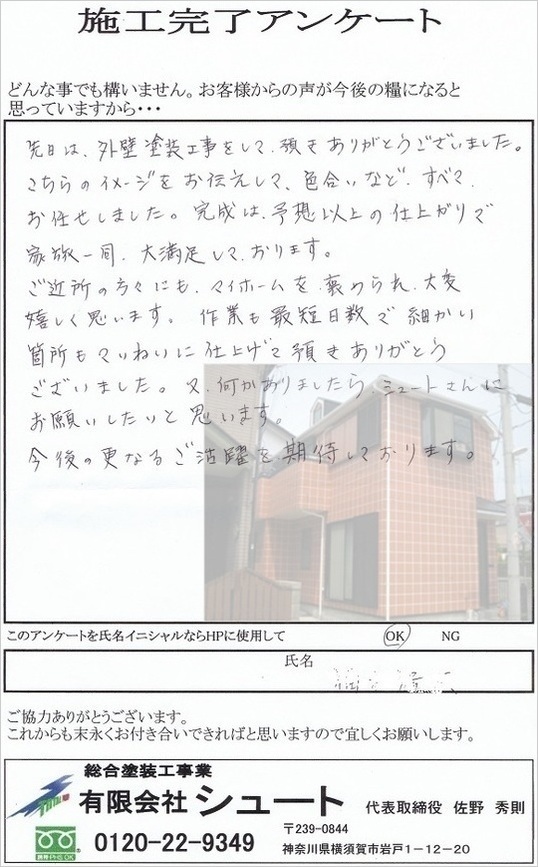 施工完了アンケート
どんな事でも構いません。お客様からの声が今後の糧になると
思っていますから・・・
先日は、外壁塗装工事をして、頂きありがとうございました。
こちらのイメージをお伝えして、色合いなど、すべて、
お任せしました。完成は、予想以上の仕上がりで
家族一同、大満足しております。
ご近所の方々にも、マイホームを褒められ、大変
嬉しく思います。作業も最短日数で細かい
箇所もていねいに仕上げて頂きありがとう
ございました。又、何かありましたら、シュートさんに
お願いしたいと思います。
今後の更なるご活躍を期待しております。
このアンケートを氏名イニシャルならHPに使用して OK NG
氏名
ご協力ありがとうございます。
これからも末永くお付き合いできればと思いますので宜しくお願いします。
総合塗装工事業
有限会社 シュート 代表取締役 佐野 秀則
0120-22-9349 〒239-0844
神奈川県横須賀市岩戸1-12-20
携帯・PHS OK